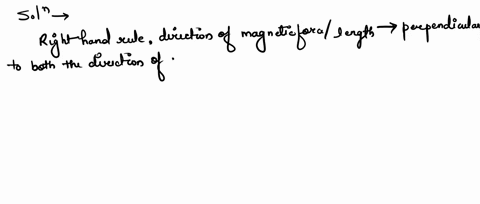 Solⁿ →
Right-hand rule, direction of magnetic force/length → perpendicular
to both the direction of